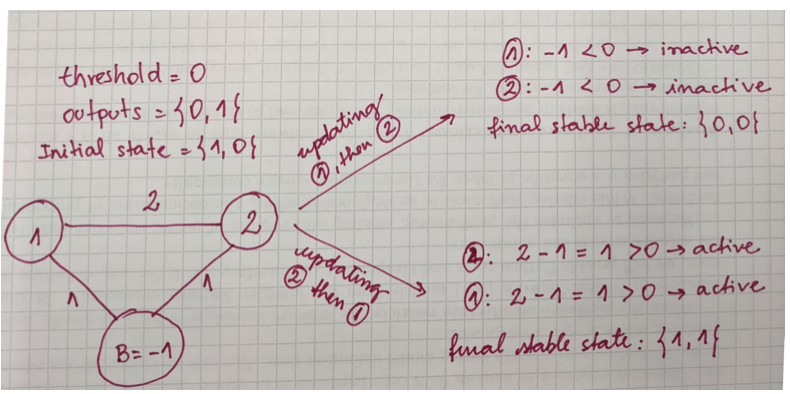 threshold = 0
outputs = {0,1}
Initial state = {1,0}
2
1
2
1
1
B=-1
updating
①, then ②
updating
② then ①
①: -1 < 0 → inactive
②: -1 < 0 → inactive
final stable state: {0,0}
②: 2 - 1 = 1 > 0 → active
①: 2 - 1 = 1 > 0 → active
final stable state: {1,1}